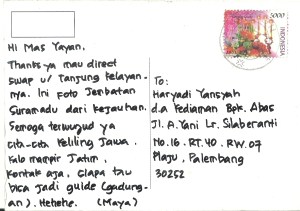 Hi Mas Yayan,
Thanks ya mau direct
swap u/ Tanjung Kelayan-
nya. Ini Foto Jembatan
Suramadu dari kejauhan.
Semoga terwujud ya
cita-cita Keliling Jawa.
Kalo mampir Jatim,
kontak aja. Siapa tau
bisa jadi guide (gadung-
an). Hehehe. (Maya)
To:
Haryadi Yansyah
d.a Kediaman Bpk. Abas
Jl. A. Yani Lr. Silaberanti
No. 16. RT. 40. RW. 07
Plaju, Palembang
30252
5000
INDONESIA